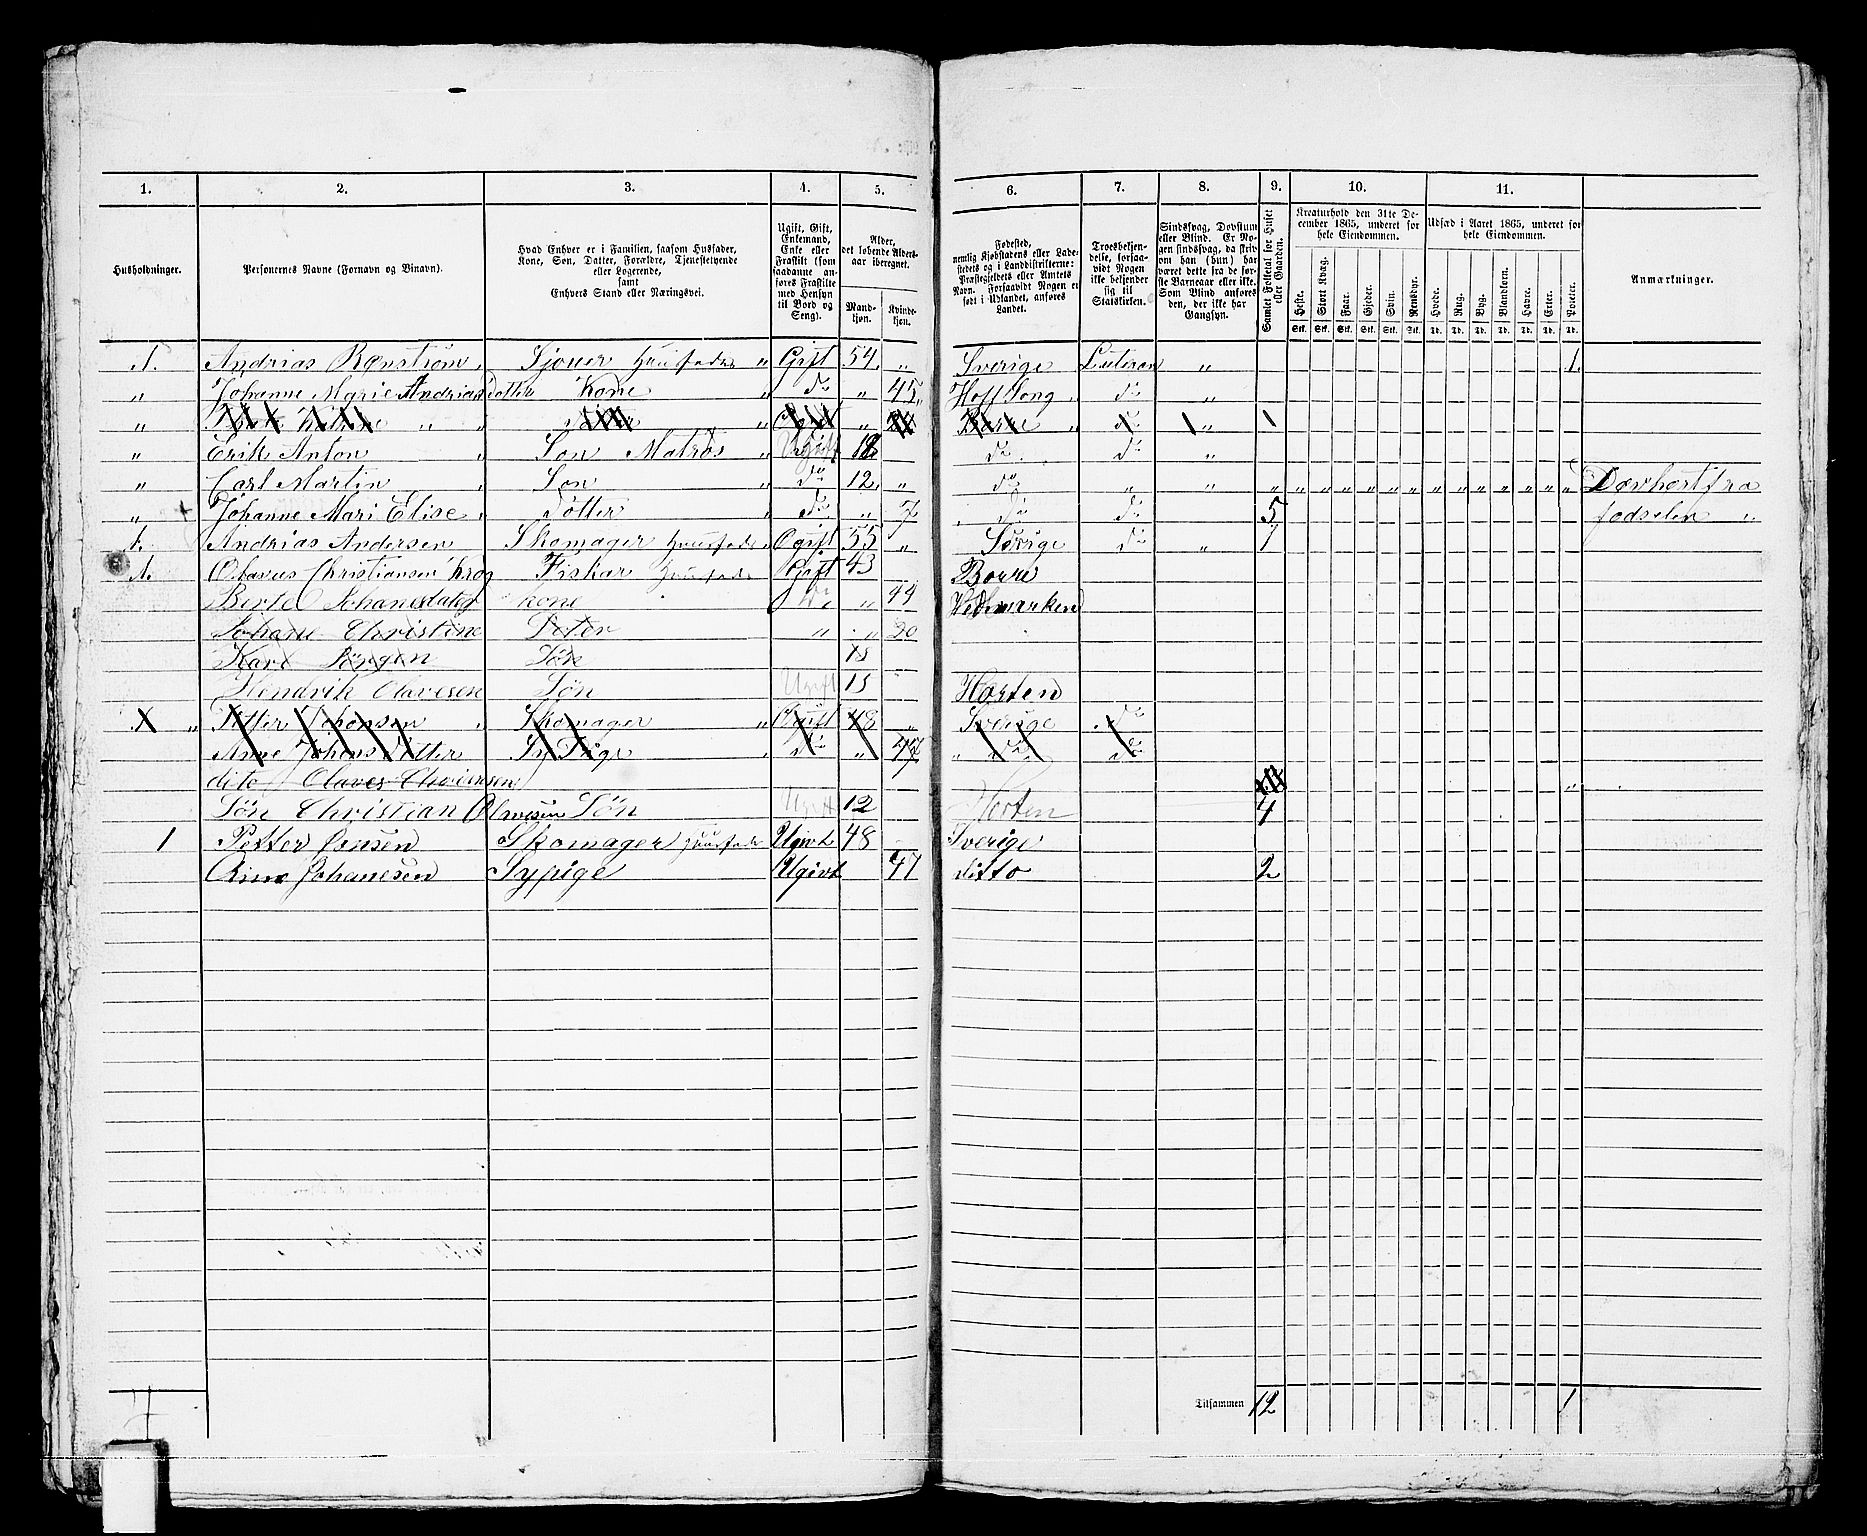 1. 2. 3. 4. 5. 6. 7. 8. 9. 10. 11.
Husholdninger.
Personernes Navne (Fornavn og Binavn).
Hvad Enhver er i Familien, saasom Husfader,
Kone, Søn, Datter, Forældre, Tjenestetyende
eller Logerende,
samt
Enhvers Stand eller Næringsvei.
Ugift, Gift,
Enkemand,
Enke eller
Fraskilt (som
saadanne an-
føres Fraskilte
med Hensyn
til Bord og
Seng).
Alder,
det løbende Alders-
aar iberegnet.
Mand-
kjøn.
Kvinde-
kjøn.
Fødested,
nemlig Kjøbstadens eller Lade-
stedets og i Landdistrikterne:
Præstegjeldets eller Amtets
Navn. Forsaavidt Nogen er
født i Udlandet, anføres
Landet.
Troesbekjen-
delse, forsaa-
vidt Nogen
ikke bekjender
sig til
Statskirken.
Sindssvag, Døvstum
eller Blind. Er No-
gen sindssvag, da skriv
om han (hun) har
været dette fra de før-
ste Barneaar eller ikke.
Som Blind anføres
den, der ikke har
Gangsyn.
Samlet Folketal for Huset
eller Gaarden.
Kreaturhold den 31te De-
cember 1865, underet for
hele Eiendommen.
Heste. Stort Kvæg. Faar. Gjeder. Svin. Rensdyr.
Stk. Stk. Stk. Stk. Stk. Stk.
Udsæd i Aaret 1865, underet for
hele Eiendommen.
Hvede. Rug. Byg. Blandkorn. Havre. Erter. Poteter.
Td. Td. Td. Td. Td. Td. Td.
Anmærkninger.
1. Andrias Rønstrøm „ Sjouer Huusfader „ Gift 54 „ Sverige Luteran „ 1.
„ Johanne Marie Andriasdotter Kone „ do 45 „ Hoff Song „ do „
„ Katrine „ „ „ „ Borre „ do „ 1
„ Erik Anton „ Søn Matros „ Ugift 18 do do „
„ Carl Martin „ Søn „ do 12 „ do „ „ „ „ „ „ „ „ „ „ „ „ „ „ „ „ Døvhørt fra
„ Johanne Mari Elise „ Dotter „ do „ 7 „ do do 5 fødselen „
1. Andrias Andersen Skomager Huusfader „ Ogift 55 „ Sverige do „ 1
1. Olavus Christiansen Krog Fiskar Huusfader Gift 43 Borre
Berte Johanesdater kone do „ 44 Hedmarken
Johane Christine Doter „ „ 20
Karl Jörgen Sön 18
Hendrik Olavesen Sön Ugift 15 Horten
X „ Petter Johansen „ Skomager „ Ogift 48 „ Sverige do
Anne Johans dotter Sy Pige „ do „ 47 „ do do
dito Olaves Christensen „
Sön Christian Olavesen Sön Ugift 12 Horten 4
1 Petter Jonsen Skomager Huusfader Ugivt 48 Sverige
Ane Johanesen Sypige Ugivt 47 ditto 2
Tilsammen 12 1
4